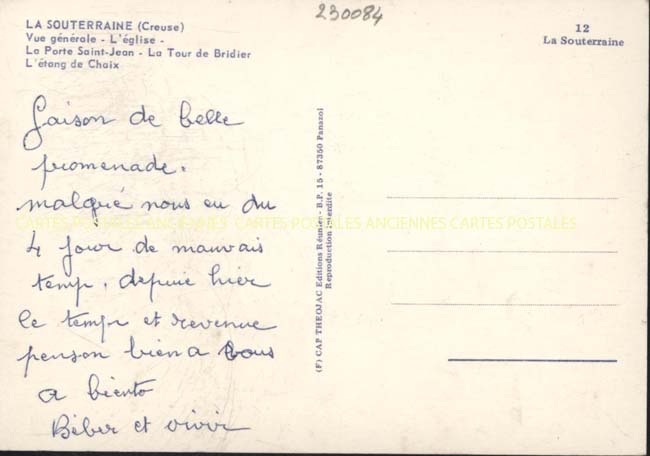 230084
LA SOUTERRAINE (Creuse)
Vue générale - L'église -
La Porte Saint-Jean - La Tour de Bridier
L'étang de Chaix
12
La Souterraine
faison de belle
promenade.
malgré nous eu du
4 jour de mauvais
temp. depuis hier
le temp et revenue
penson bien a vous
a biento
Béber et vivir
(F) CAP THEOJAC Editions Réunies - B.P. 15 - 87350 Panazol
Reproduction interdite
CARTES POSTALES ANCIENNES CARTES POSTALES ANCIENNES CARTES POSTALES